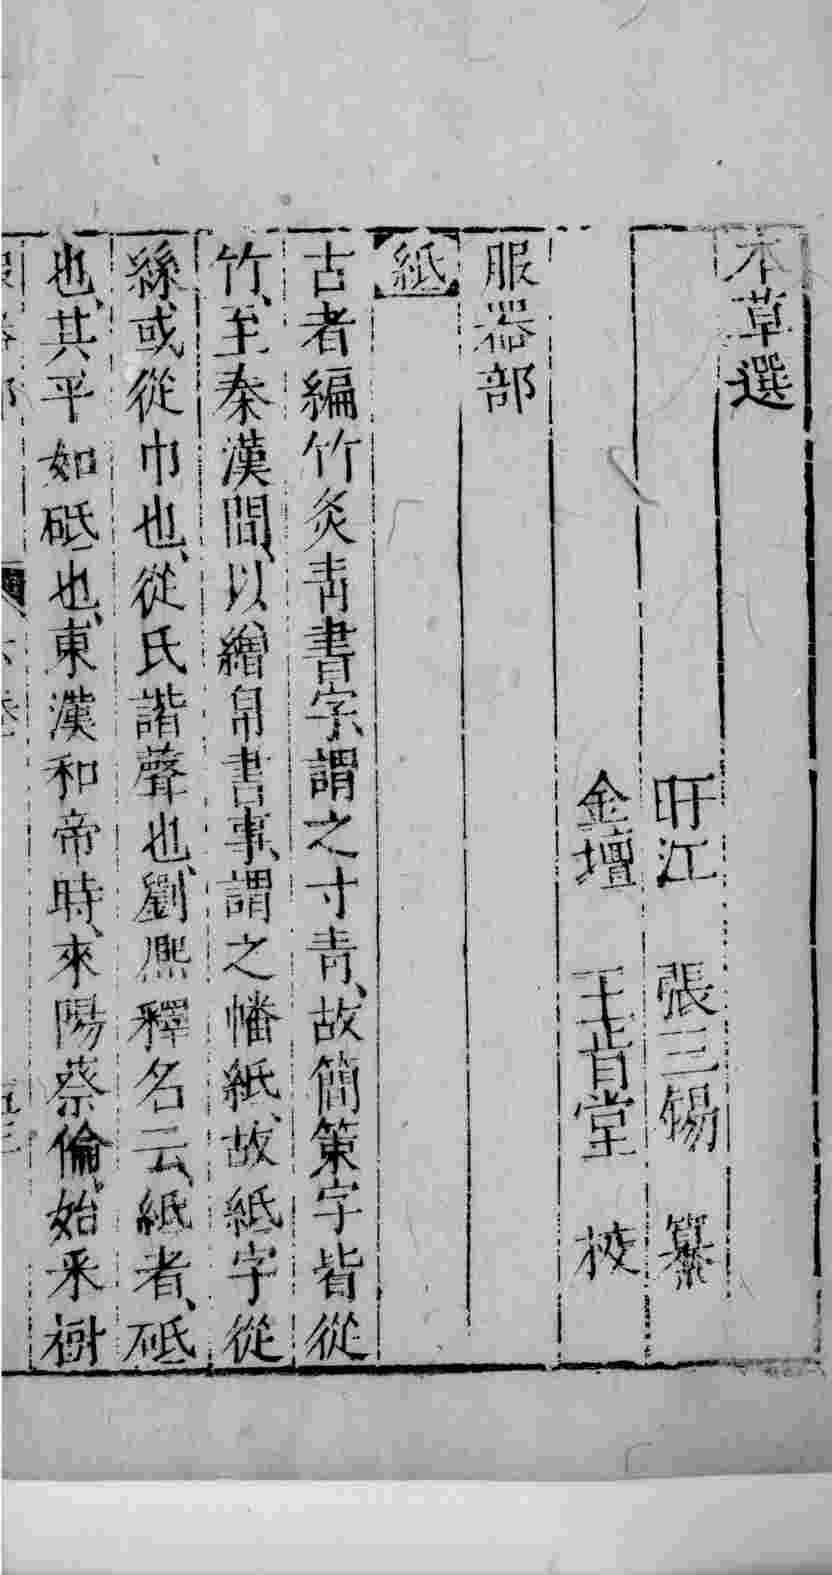 本草選
盱江　張三錫　纂
金壇　王肯堂　校
服器部
紙
古者編竹炙靑書字、謂之寸靑、故簡策字皆從
竹、至秦漢間、以繒帛書事、謂之幡紙、故紙字從
絲、或從巾也、從氏諧聲也、劉熙釋名云、紙者、砥
也、其平如砥也、東漢和帝時、來陽蔡倫、始采樹
服器部　六卷　五三